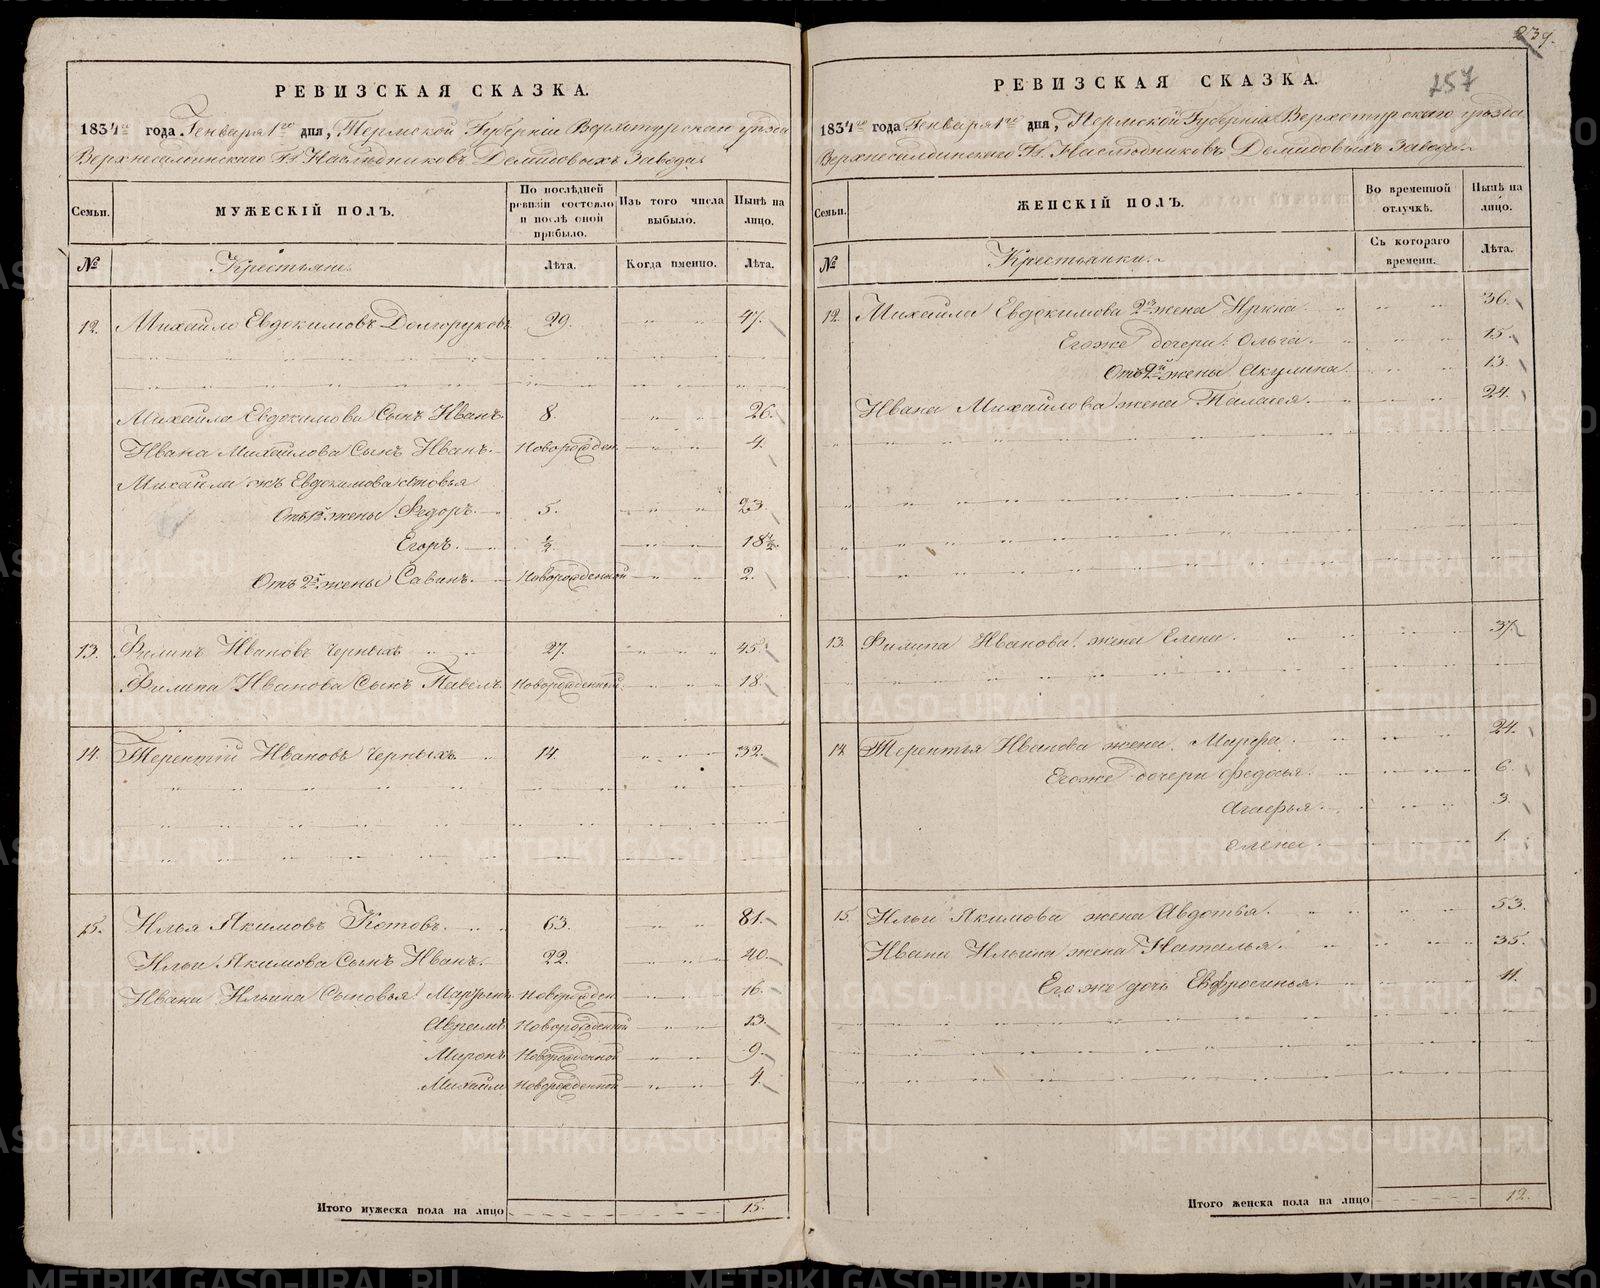 239.
257
РЕВИЗСКАЯ СКАЗКА.
1834го года Генваря 1го дня, Пермской Губернiи Верхотурскаго уѣзда
Верхнесалдинскаго Гг. Наслѣдниковъ Демидовыхъ Завода.
Семьи.
МУЖЕСКIЙ ПОЛЪ.
По послѣдней ревизiи состояло и послѣ оной прибыло.
Изъ того числа выбыло.
Нынѣ на лицо.
№
Крестьяне.
Лѣта.
Когда именно.
Лѣта.
12. Михайло Евдокимовъ Долгоруковъ 29. 47.
Михайла Евдокимова Сынъ Иванъ 8. 26.
Ивана Михайлова Сынъ Иванъ. Новорожден. 4.
Михайлы жъ Евдокимова сыновья
Отъ 1й жены Федоръ. 5. 23.
Егоръ. ½ 18½.
Отъ 2й жены Саванъ. Новорожденной 2.
13. Филипъ Ивановъ Черныхъ 27. 45.
Филипа Иванова Сынъ Павелъ. Новорожденный. 18.
14. Терентiй Ивановъ Черныхъ 14. 32.
15. Илья Якимовъ Котовъ. 63. 81.
Ильи Якимова Сынъ Иванъ. 22. 40.
Ивана Ильина Сыновья Мартынъ Новорожден. 16.
Аврамъ Новорожденной 13.
Миронъ Новорожденной 9.
Михайл Новорожденной 4.
Итого мужеска пола на лицо 15.
РЕВИЗСКАЯ СКАЗКА.
1834го года Генваря 1го дня, Пермской Губернiи Верхотурскаго уѣзда
Верхнесалдинскаго Гг. Наслѣдниковъ Демидовыхъ Завода.
Семьи.
ЖЕНСКIЙ ПОЛЪ.
Во временной отлучкѣ.
Нынѣ на лицо.
№
Крестьянки.
Съ котораго времени.
Лѣта.
12. Михайла Евдокимова 2я жена Ирина. 36.
Его же дочери: Ольга. 15.
Отъ 2й жены Акулина. 13.
Ивана Михайлова жена Палагея. 24.
13. Филипа Иванова жена Елена. 37.
14. Терентья Иванова жена Марфа. 24.
Его же дочери Федосья. 6.
Агафья. 3.
Елена. 1.
15. Ильи Якимова жена Авдотья. 53.
Ивана Ильина жена Наталья. 35.
Его же дочь Евфросинья. 11.
Итого женска пола на лицо 12.
METRIKI.GASO-URAL.RU